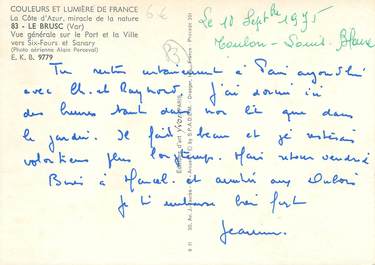 COULEURS ET LUMIÈRE DE FRANCE
La Côte d'Azur, miracle de la nature
83 - LE BRUSC (Var)
Vue générale sur le Port et la Ville
vers Six-Fours et Sanary
(Photo aérienne Alain Perceval)
E. K. B. 9779
6 €
Le 10 Septbre 1975
Toulon - Saint-
Tu rentres à Paris aujourd'hui
avec Ch. et Raymond. J'ai dormi ici
des heures tant dans mon lit que dans
le jardin. Il fait beau et je resterais
volontiers plus longtemps. Mais retour vendredi
Bises à Marcel et amitiés aux Dubois
Je t'embrasse bien fort
Jeanne
Editions d'art YVON PARIS